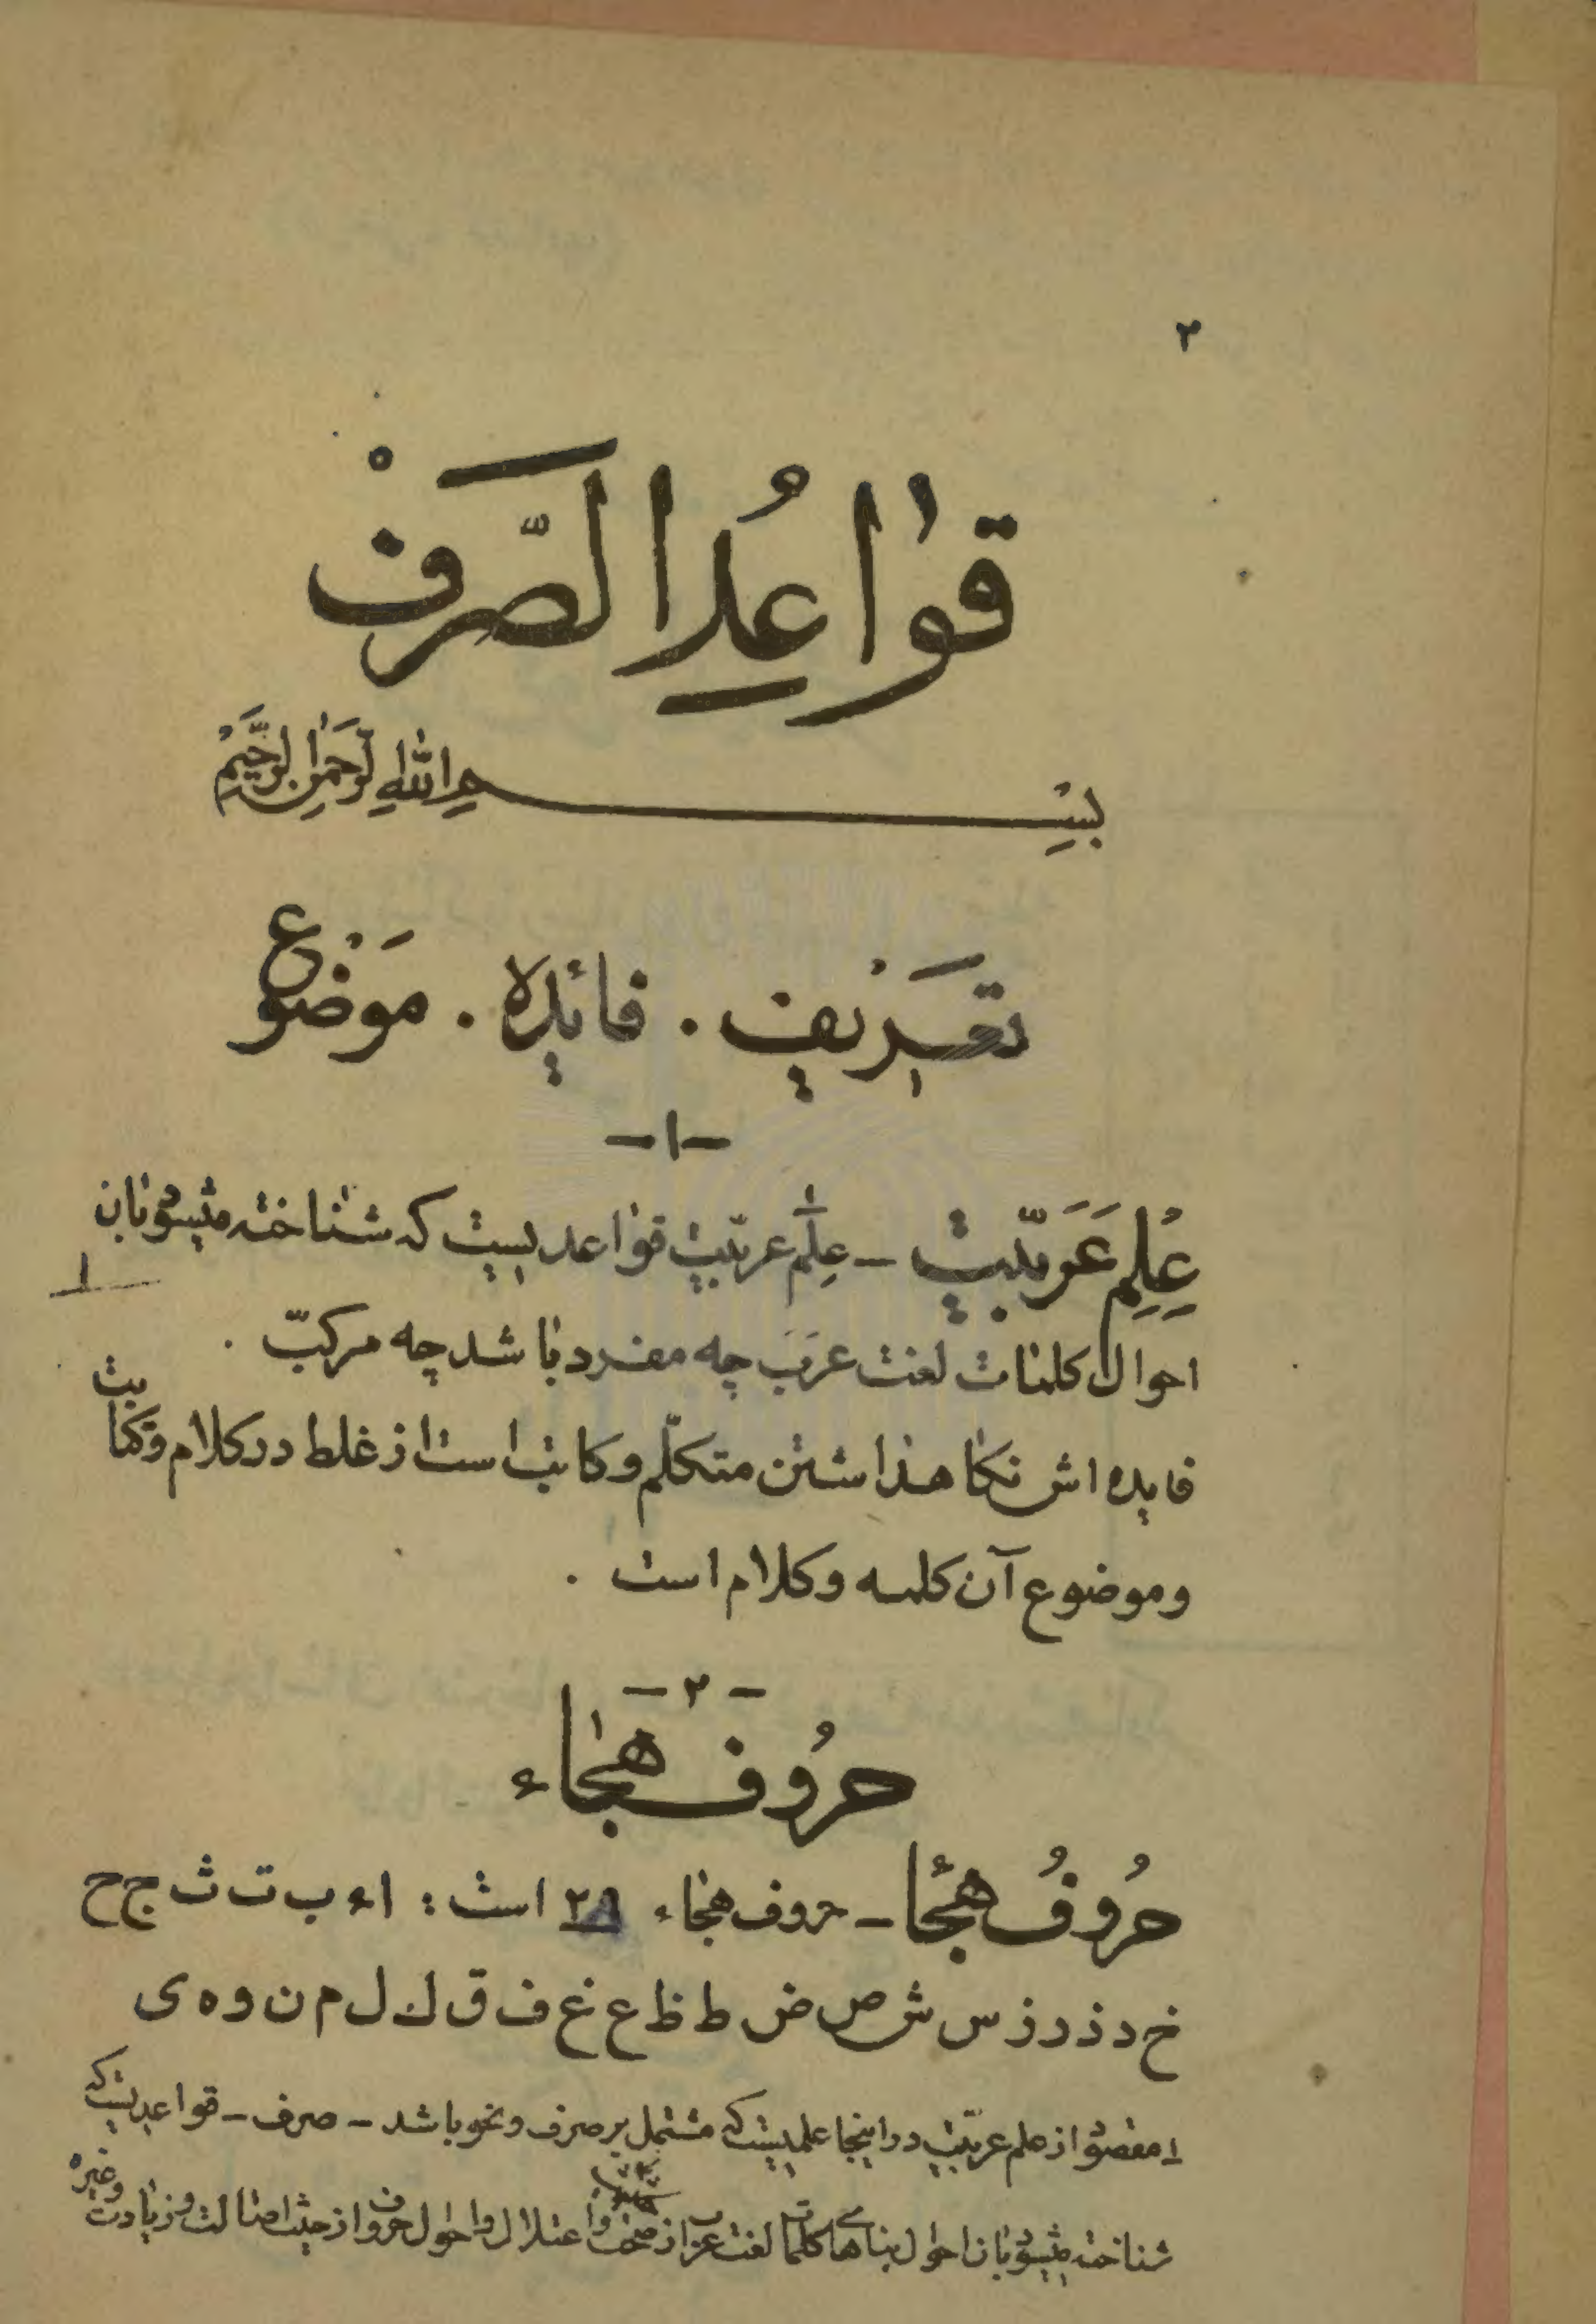 ۲
قواعدُ الصَّرفْ
بسم الله الرحمن الرحیم
تعریف . فائده . موضوع
-۱-
علم عربیّت - علم عربیّت قواعدیست که شناخته میشود بآن
۱
احوال کلمات لغت عرب چه مفرد باشد چه مرکبّ .
فایده اش نگاهداشتن متکلّم و کاتب است از غلط در کلام و کتابت
و موضوع آن کلمه و کلام است .
-۲-
حروف هجاء
حُروفُ هجا - حروف هجاء ۲۹ است : ا ء ب ت ث ج ح
خ د ذ ر ز س ش ص ض ط ظ ع غ ف ق ك ل م ن و ه ی
۱ مقصود از علم عربیّت در اینجا علمیست که مشتمل بر صرف و نحو باشد - صرف - قواعدیست که
شناخته میشود بآن احوال بناهای کلمات لغت عرب از صحت و اعتلال و احوال حروف از حیث اصالت و زیادت و غیره